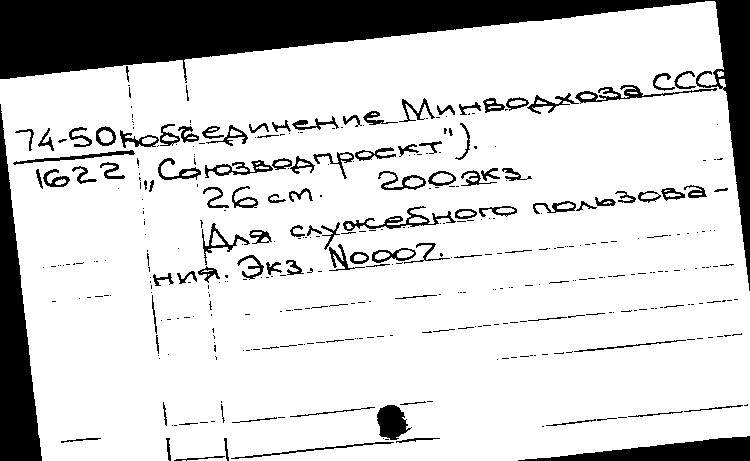 74-50к объединение Минводхоза СССР
1622 „Союзводпроект").
26 cm. 200 экз.
Для служебного пользова-
ния. Экз. N0007.